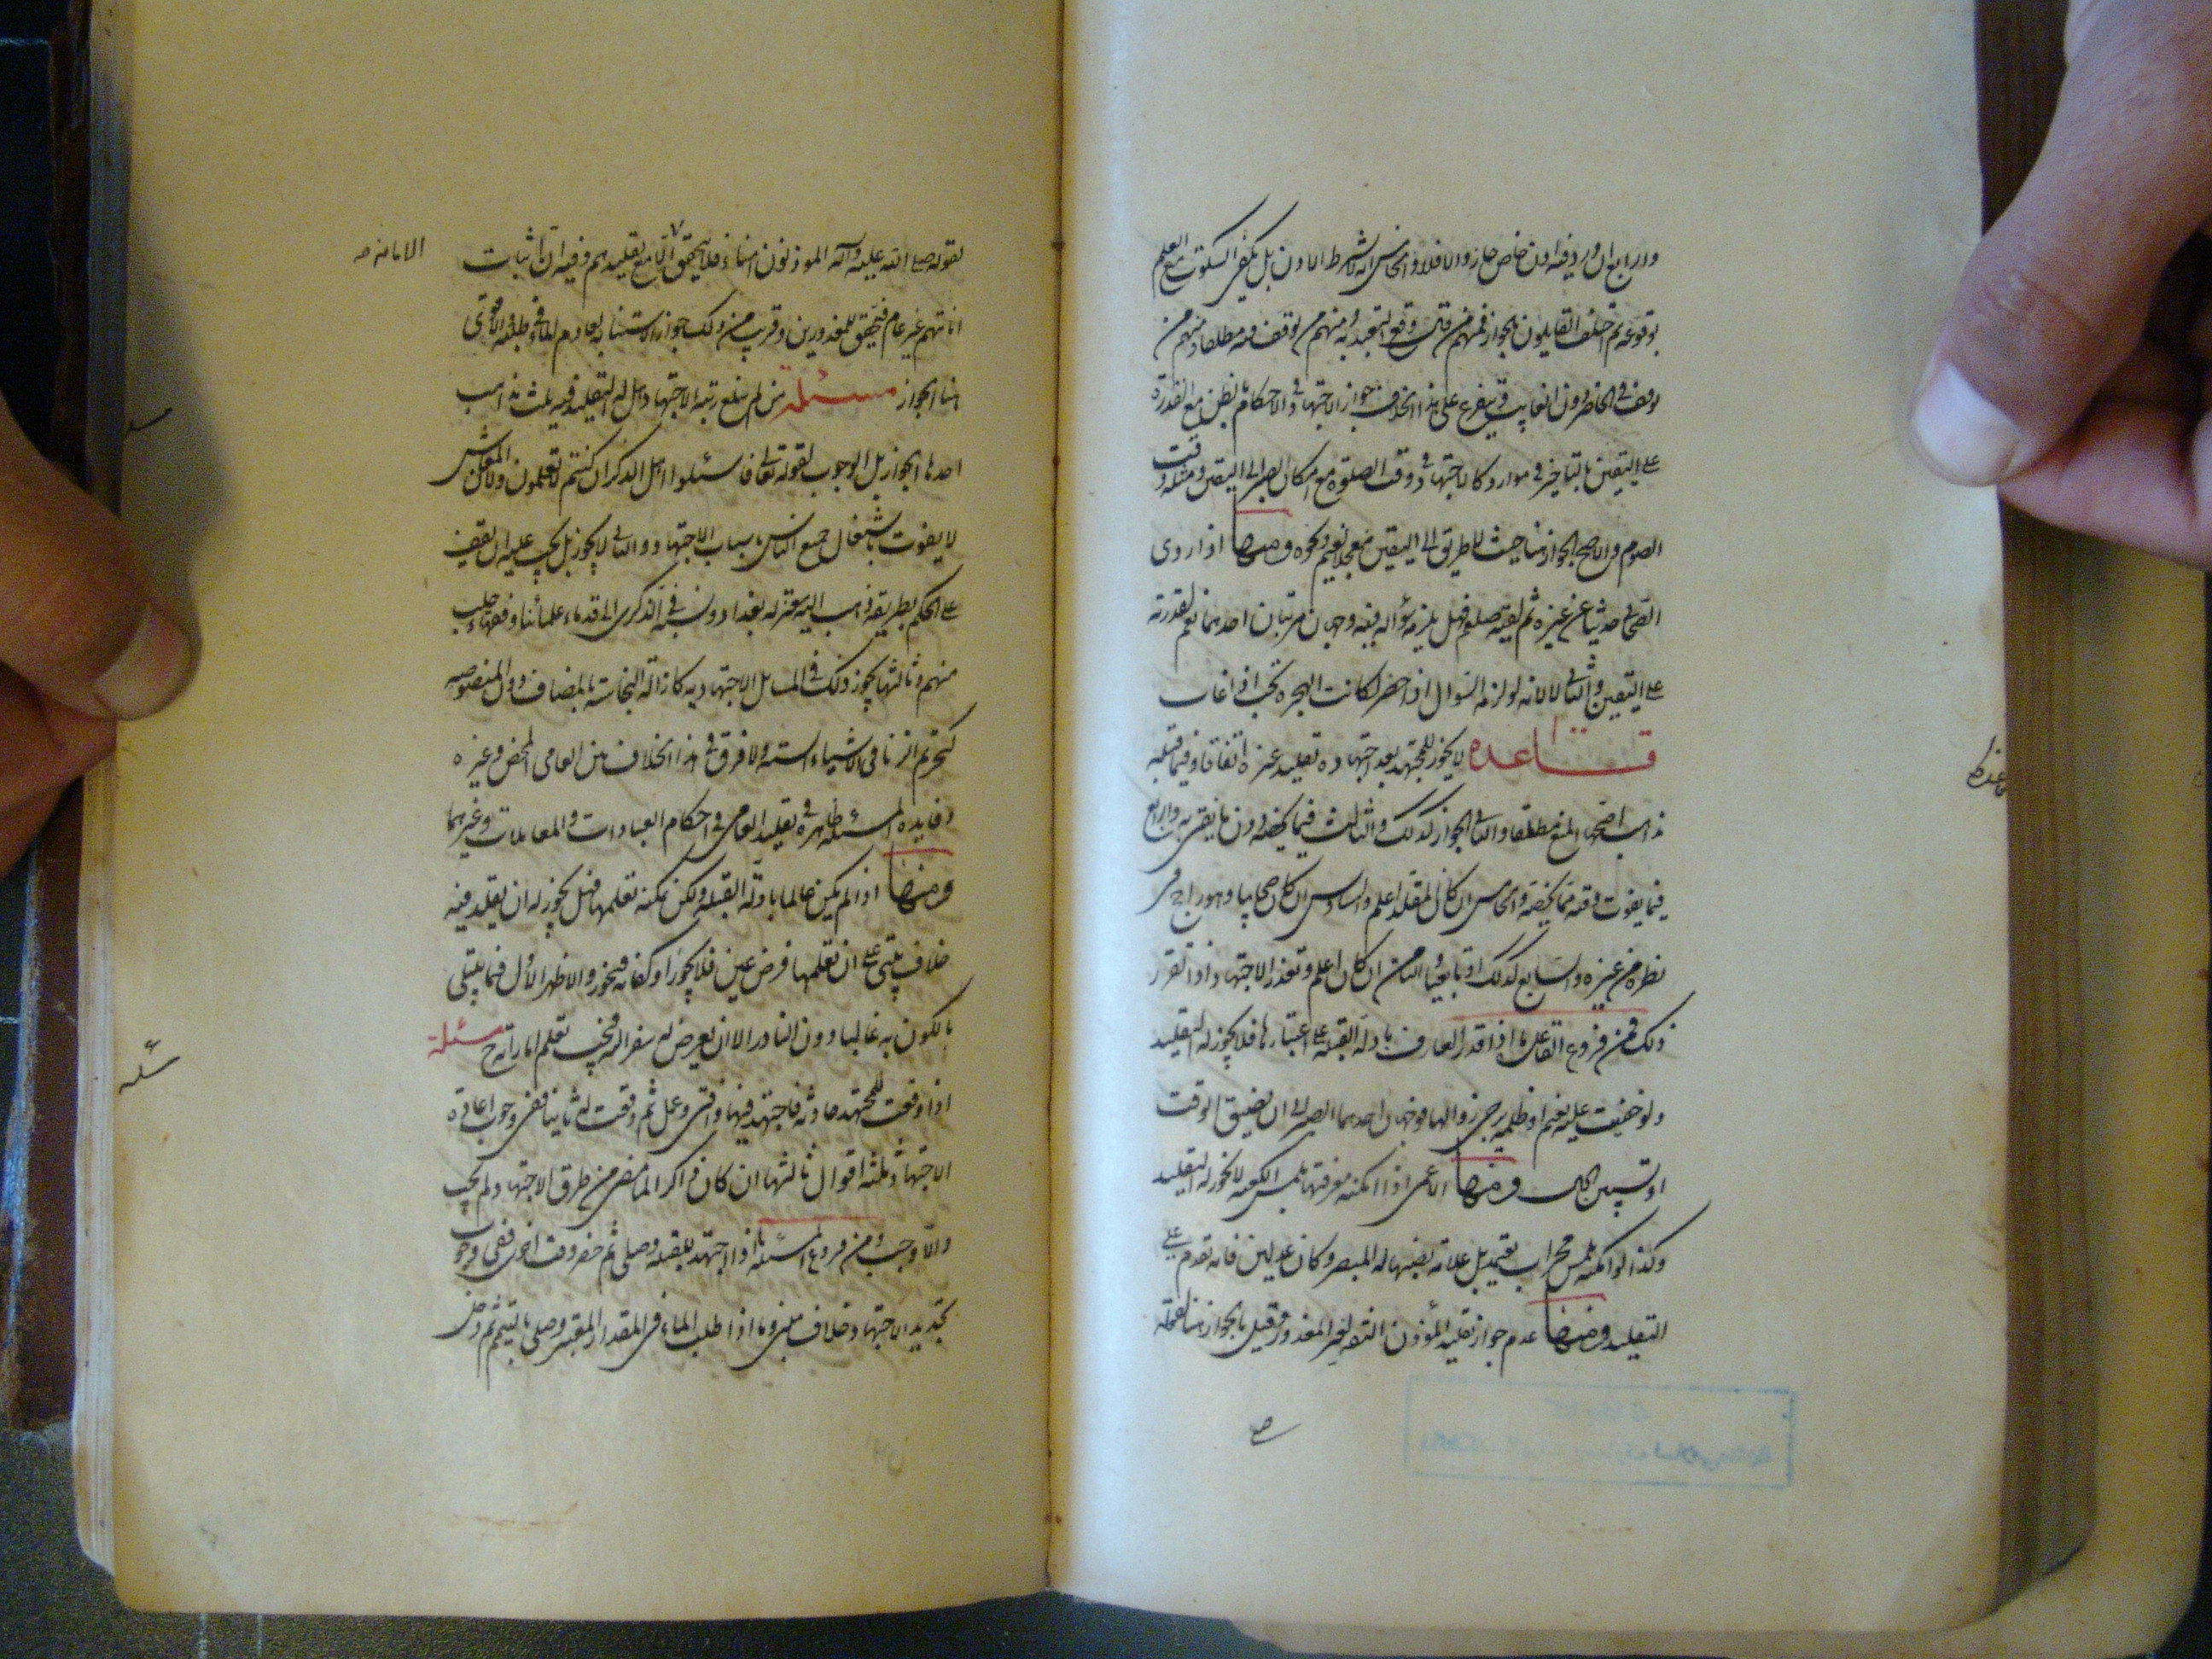 ورابع ان ورد فيه اذن خاص جاز والا فلا والخامس انه لا يشترط الاذن بل يكفى السكوت مع العلم
بوقوعه ثم اختلف القايلون بالجواز فمنهم من قال وقع التعبد به ومنهم من توقف فيه مطلقا ومنهم من
توقف فى الحاضر دون الغايب ويتفرع على هذا الخلاف جواز الاجتهاد فى الاحكام بالظن مع القدرة
على اليقين بالتاخير فى موارد كالاجتهاد فى وقت الصلوة مع امكان الصبر الى اليقين ومثله وقت
الصوم والاصح الجواز هنا حيث لا طريق الى اليقين معجلا لغيم ونحوه ومنها اذا روى
الصحابى حديثا عن غيره ثم لقيه صلعم فهل يلزمه سؤاله فيه وجهان مرتبان احدهما نعم لقدرته
على اليقين والثانى لا لانه لو لزمه السؤال اذا حضر لكانت الهجرة تجب اذا غاب
قاعده لا يجوز للمجتهد بعد اجتهاده تقليد غيره اتفاقا وفيما قبله
مذاهب اصحها المنع مطلقا والثانى الجواز كذلك والثالث فيما يخصه دون ما يفتى به والرابع
فيما يفوت وقته مما يخصه والخامس ان كان المقلد اعلم والسادس ان كان صحابيا وهو راجح فى
نظره من غيره والسابع كذلك او تابعيا والثامن ان كان اعلم وتعذر الاجتهاد اذا تقرر
ذلك فمن فروع القاعدة ما اذا قدر العارف بادلة القبلة على اعتبارها فلا يجوز له التقليد
ولو خفيت عليه لغيم او ظلمة يرجى زوالها فوجهان احدهما الصبر الى ان يضيق الوقت
او تسبين الحال ومنها الاعمى اذا امكنه معرفتها بلمس الكعبة لا يجوز له التقليد
وكذا لو امكنه بلمس محراب يعتمد بل علامة يضعها له المبصر وكان عدلين فانه تقدم على
التقليد ومنها عدم جواز تقليد المؤذن الثقة لغير المعذور وقيل بالجواز هنا لقوله
صلى
لقوله صلى الله عليه وآله المؤذنون امناء فلا يتحقق الا مع تقليدهم وفيه ان اثبات
الامانة صح
امانتهم غير عام فيتحقق للمعذورين وقريب من ذلك جواز الاستنابة لعادم الماء فى طلبه والاقوى
هنا الجواز مسئلة من لم يبلغ رتبة الاجتهاد هل له التقليد فيه ثلث مذاهب
احدها الجواز بل الوجوب لقوله تعالى فاسئلوا اهل الذكر ان كنتم لا تعلمون ولان المعاش
لا يفوت باشتغال جميع الناس باسباب الاجتهاد والثانى لا يجوز بل يجب عليه ان يقف
على الحكم بطريقه ذهب اليه معتزلة بغداد ونسبه فى الذكرى الى قدماء علمائنا وفقهاء حلب
منهم وثالثها يجوز ذلك فى المسائل الاجتهادية كازالة النجاسة بالمضاف دون المنصوصة
كتحريم الربا فى الاشياء الستة ولا فرق فى هذا الخلاف بين العامى المحض وغيره
وفايدة المسئلة ظاهرة فى تقليد العامى فى احكام العبادات والمعاملات وغيرهما
ومنها اذا لم يكن عالما بادلة القبلة ولكن يمكنه تعلمها فهل يجوز له ان يقلد فيه
خلاف يبتنى على ان تعلمها فرض عين فلا يجوز او كفاية فيجوز والاظهر الاول فيما يبتلى
بالكون به غالبا دون النادر الا ان يعرض له سفر اليه فيجب تعلم اماراته ح مسئلة
اذا وقعت للمجتهد حادثة فاجتهد فيها وافتى وعمل ثم وقعت له ثانيا ففى وجوب اعادة
الاجتهاد ثلثة اقوال ثالثها ان كان ذاكرا لما مضى من طرق الاجتهاد لم يجب
والا وجب ومن فروع المسئلة ما اذا اجتهد للقبلة وصلى ثم حضر وقت اخرى ففى وجوب
تجديد الاجتهاد خلاف مبنى وما اذا طلب الماء فى المقدار المعتبر وصلى بالتيمم ثم دخل